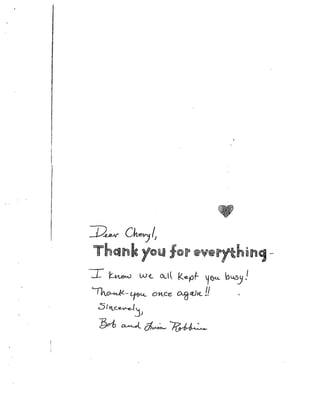 Dear Cheryl,
Thank you for everything-
I know we all kept you busy!
Thank-you once again!!
Sincerely,
Bob and Robbins